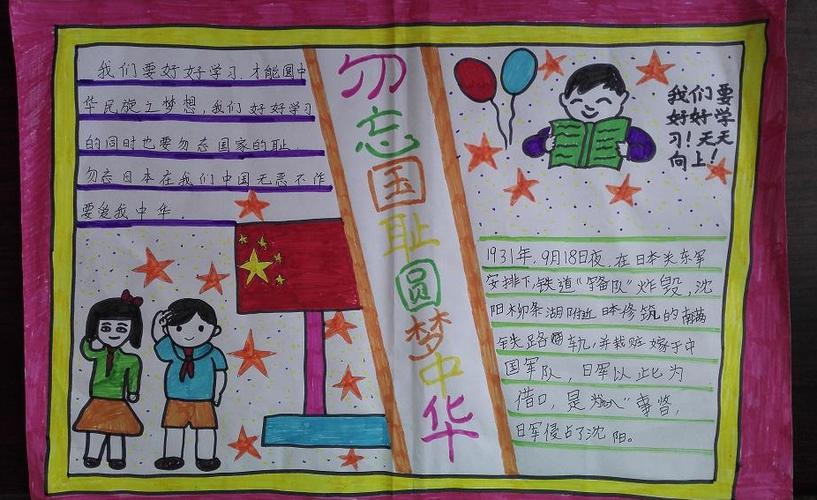 我们要好好学习.才能圆中
华民族之梦想,我们好好学习
的同时也要勿忘国家的耻.
勿忘日本在我们中国无恶不作
要爱我中华.
勿忘国耻圆梦中华
我们要
好好学
习!天天
向上!
1931年.9月18日夜.在日本关东军
安排下,铁道"守备队"炸毁,沈
阳柳条湖附近日本修筑的南满
铁路路轨,并栽赃嫁于中
国军队,日军以此为
借口,是 事变,
日军侵占了沈阳。